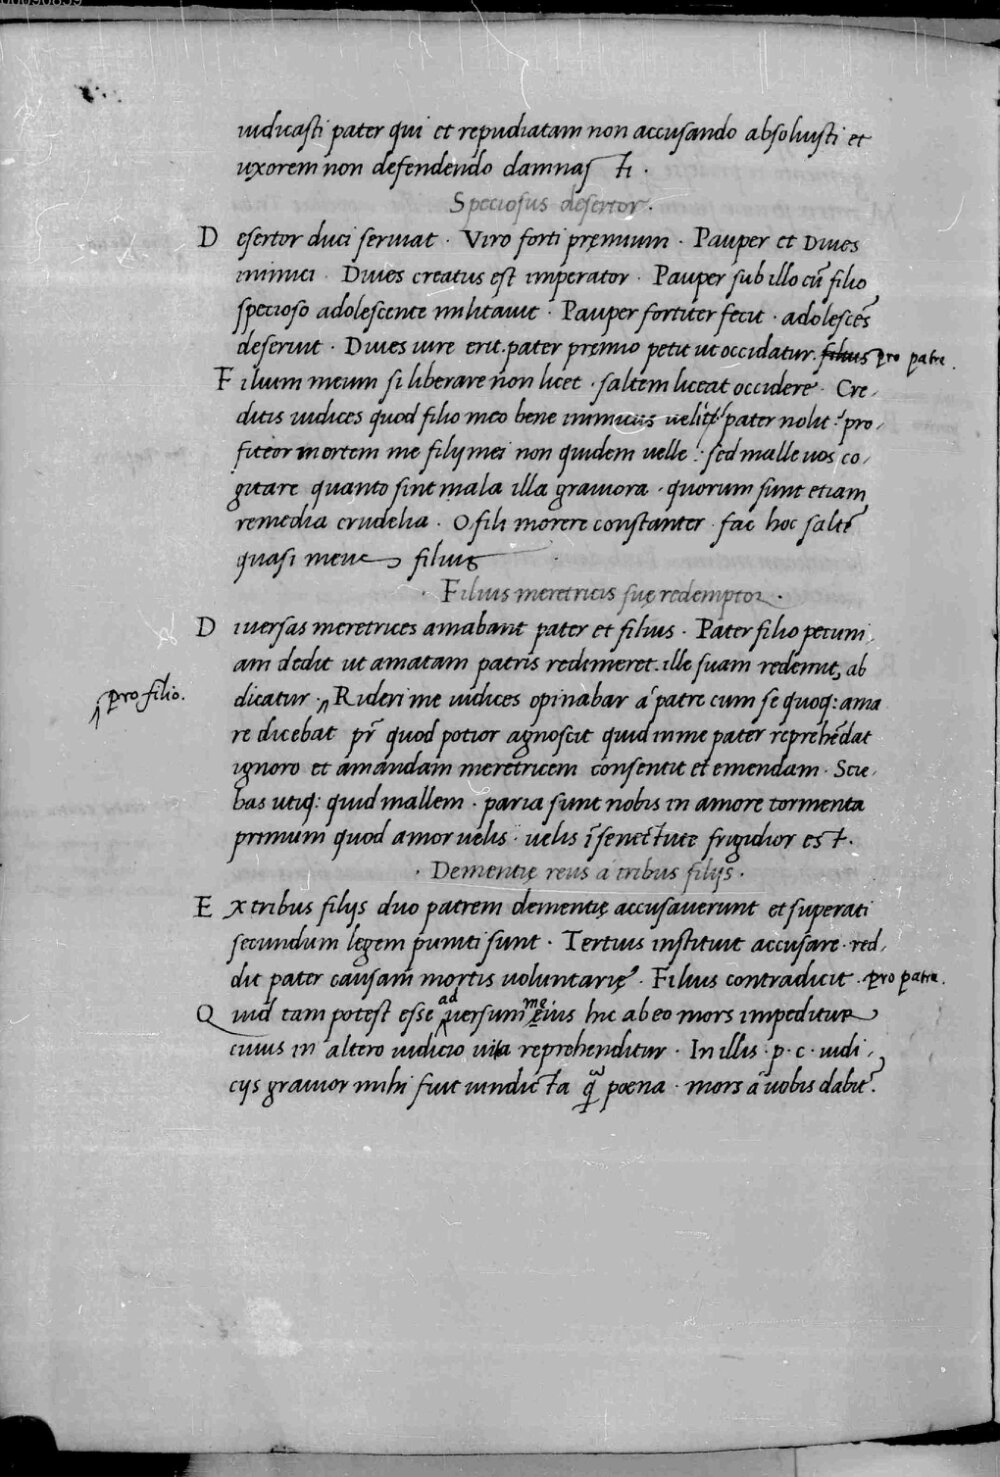 iudicasti pater qui et repudiatam non accusando absoluisti et
uxorem non defendendo damnasti .
Speciosus desertor .
Desertor duci seruiat . Viro forti pręmium . Pauper et Diues
inimici . Diues creatus est imperator . Pauper sub illo cū filio
specioso adolescente militauit . Pauper fortiter fecit . adolescēs
deseruit . Diues iure erit . pater premio petit ut occidatur . filius pro patre .
Filium meum si liberare non licet . saltem liceat occidere . Cre,
ditis iudices quod filio meo bene inimicus uelit pater nolit : pro,
fiteor mortem me filij mei non quidem uelle : sed malle uos co,
gitare quanto sint mala illa grauiora . quorum sunt etiam
remedia crudelia . O fili morere constanter . fac hoc saltē
quasi meus filius
. Filius meretricis suę redemptor .
Diuersas meretrices amabant pater et filius . Pater filio pecuni,
am dedit ut amatam patris redimeret . ille suam redemit, ab
pro filio .
dicatur . Rideri me iudices opinabar á patre cum se quoq: ama
re dicebat pr̄ quod potior agnoscit quid in me pater reprehēdat
ignoro et amandam meretricem consentit et emendam . Scie,
bas utiq: quid mallem . paria sunt nobis in amore tormenta
primum quod amor uelis . uelis ī senectute frigidior est .
. Dementię reus a tribus filijs .
Ex tribus filijs duo patrem dementię accusauerunt et superati
secundum legem puniti sunt . Tertius instituit accusare . red,
dit pater causam mortis uoluntarię . Filius contradicit . pro patre .
Quid tam potest esse aduersum me eius hic ab eo mors impeditur
cuius in altero iudicio uita reprehenditur . In illis . p . c . iudi,
cijs grauior mihi fuit uindicta q̄ poena . mors á uobis dabit̄ .